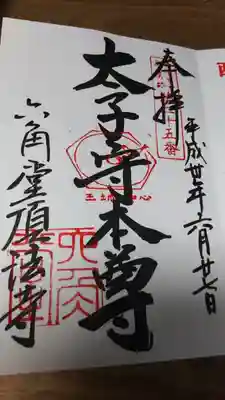 奉拝
平成廿年六月廿七日
太子守本尊
六角堂頂法寺